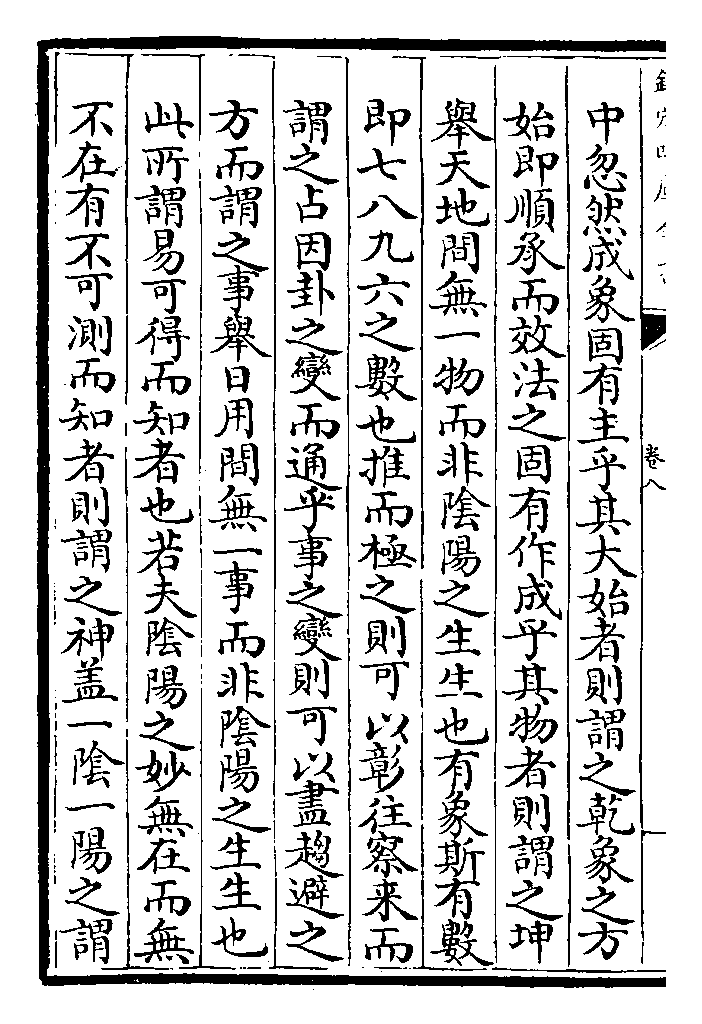 卷八
中忽然成象固有主乎其大始者則謂之乾象之方
始即順承而效法之固有作成乎其物者則謂之坤
舉天地間無一物而非陰陽之生生也有象斯有數
即七八九六之數也推而極之則可以彰往察来而
謂之占因卦之變而通乎事之變則可以盡趨避之
方而謂之事舉日用間無一事而非陰陽之生生也
此所謂易可得而知者也若夫陰陽之妙無在而無
不在有不可測而知者則謂之神盖一陰一陽之謂